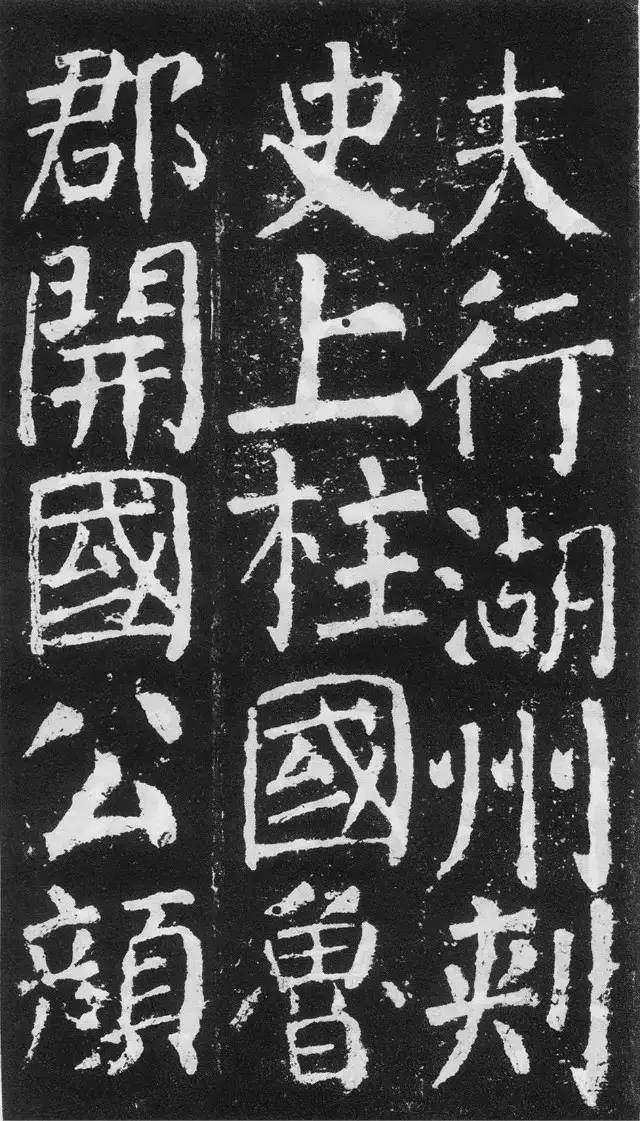 夫行湖州刺
史上柱國魯
郡開國公顔